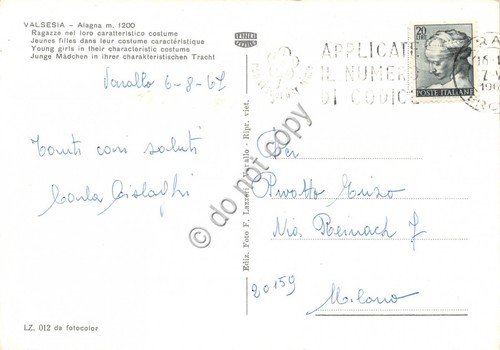 VALSESIA - Alagna m. 1200
Ragazze nel loro caratteristico costume
Jeunes filles dans leur costume caractéristique
Young girls in their characteristic costume
Junge Mädchen in ihrer charakteristischen Tracht
Varallo 6-8-67
Tanti cari saluti
Carla
LZ. 012 da fotocolor
Ediz. Foto F. Lazzeri - Varallo - Ripr. viet.
APPLICATE
IL NUMERO
DI CODICE
20
LIRE
POSTE ITALIANE
Per
Enzo
Via Reinach 7
20159
Milano
do not copy